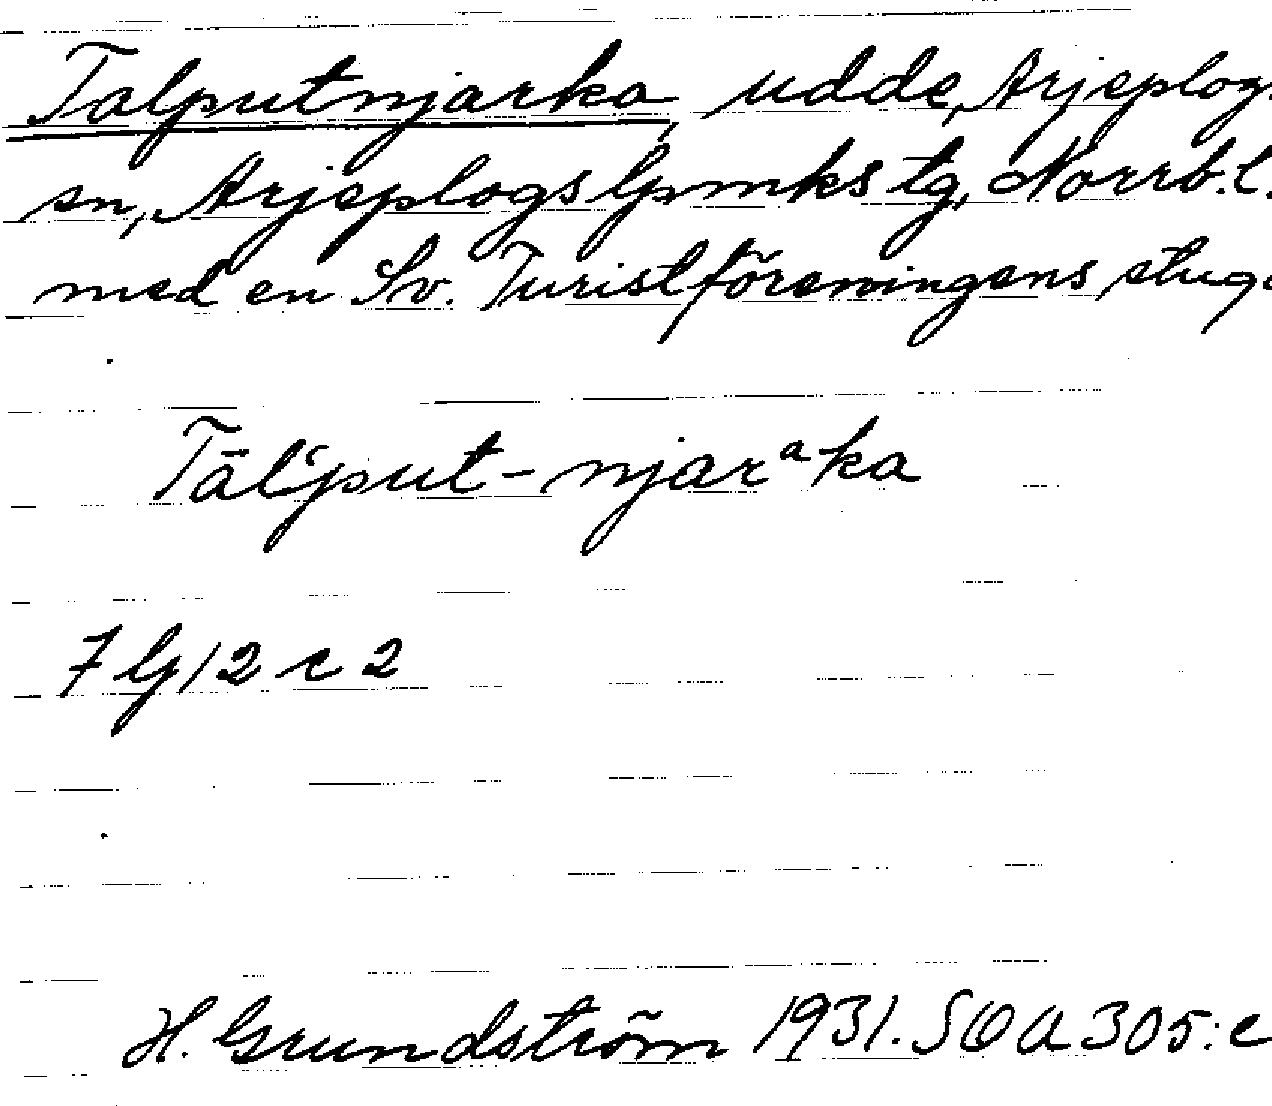 Talputnjarka, udde, Arjeplogs
sn, Arjeplogs lpmks tg, Norrb. l.
med en Sv. Turistföreningens stuga
Tāl‘put-njarᵃka
7 G/2 c 2
H. Grundström 1931. SOA 305:c